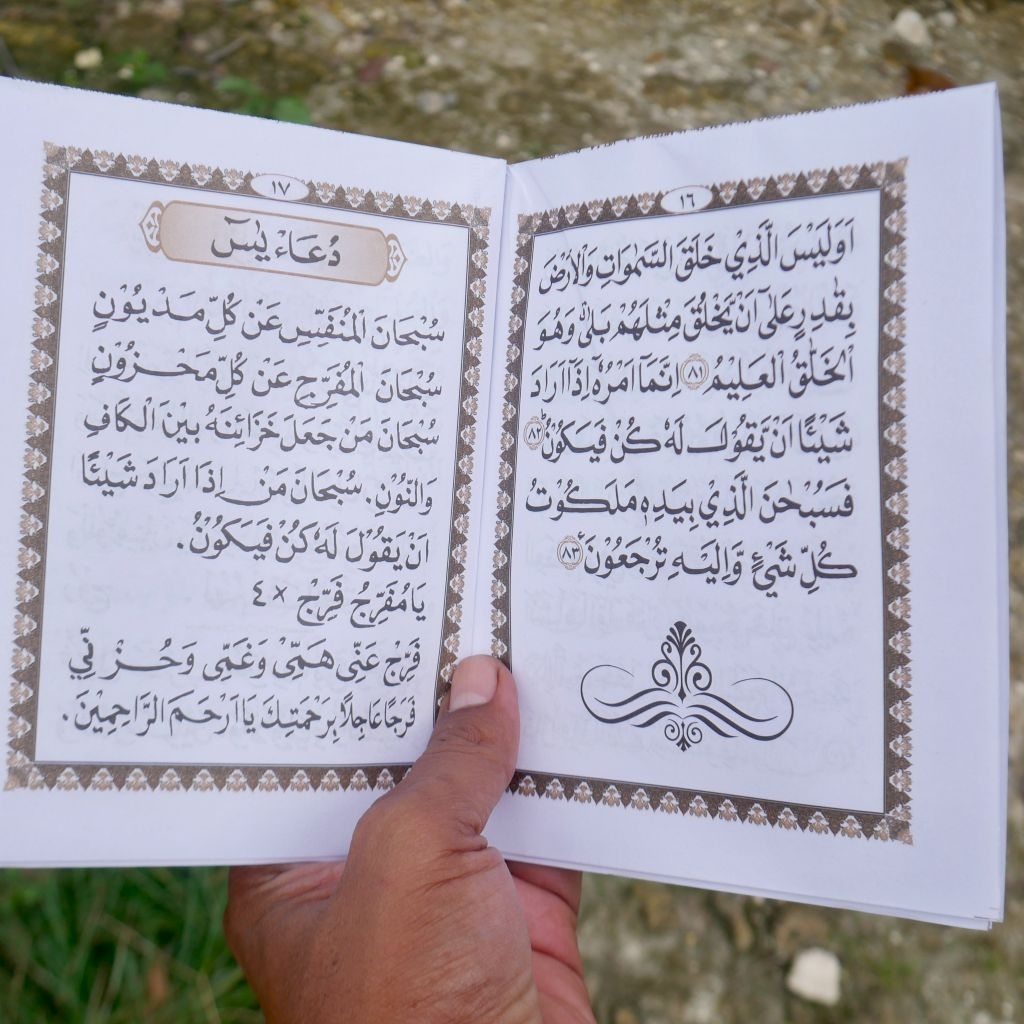 ١٦
اَوَلَيْسَ الَّذِيْ خَلَقَ السَّمٰوَاتِ وَالْاَرْضَ
بِقٰدِرٍ عَلٰٓى اَنْ يَّخْلُقَ مِثْلَهُمْ بَلٰى وَهُوَ
الْخَلّٰقُ الْعَلِيْمُ ٨١ اِنَّمَآ اَمْرُهٗٓ اِذَآ اَرَادَ
شَيْـًٔا اَنْ يَّقُوْلَ لَهٗ كُنْ فَيَكُوْنُ ٨٢
فَسُبْحٰنَ الَّذِيْ بِيَدِهٖ مَلَكُوْتُ
كُلِّ شَيْءٍ وَّاِلَيْهِ تُرْجَعُوْنَ ٨٣
١٧
دُعَاءْ يٰسٓ
سُبْحَانَ الْمُنَفِّسِ عَنْ كُلِّ مَدْيُوْنٍ
سُبْحَانَ الْمُفَرِّجِ عَنْ كُلِّ مَحْزُوْنٍ
سُبْحَانَ مَنْ جَعَلَ خَزَائِنَهُ بَيْنَ الْكَافِ
وَالنُّوْنِ. سُبْحَانَ مَنْ اِذَا اَرَادَ شَيْئًا
اَنْ يَقُوْلَ لَهُ كُنْ فَيَكُوْنُ.
يَا مُفَرِّجُ فَرِّجْ ×٤
فَرِّجْ عَنِّى هَمِّىْ وَغَمِّى وَحُزْنِيْ
فَرَجًا عَاجِلاً بِرَحْمَتِكَ يَا اَرْحَمَ الرَّاحِمِيْنَ.